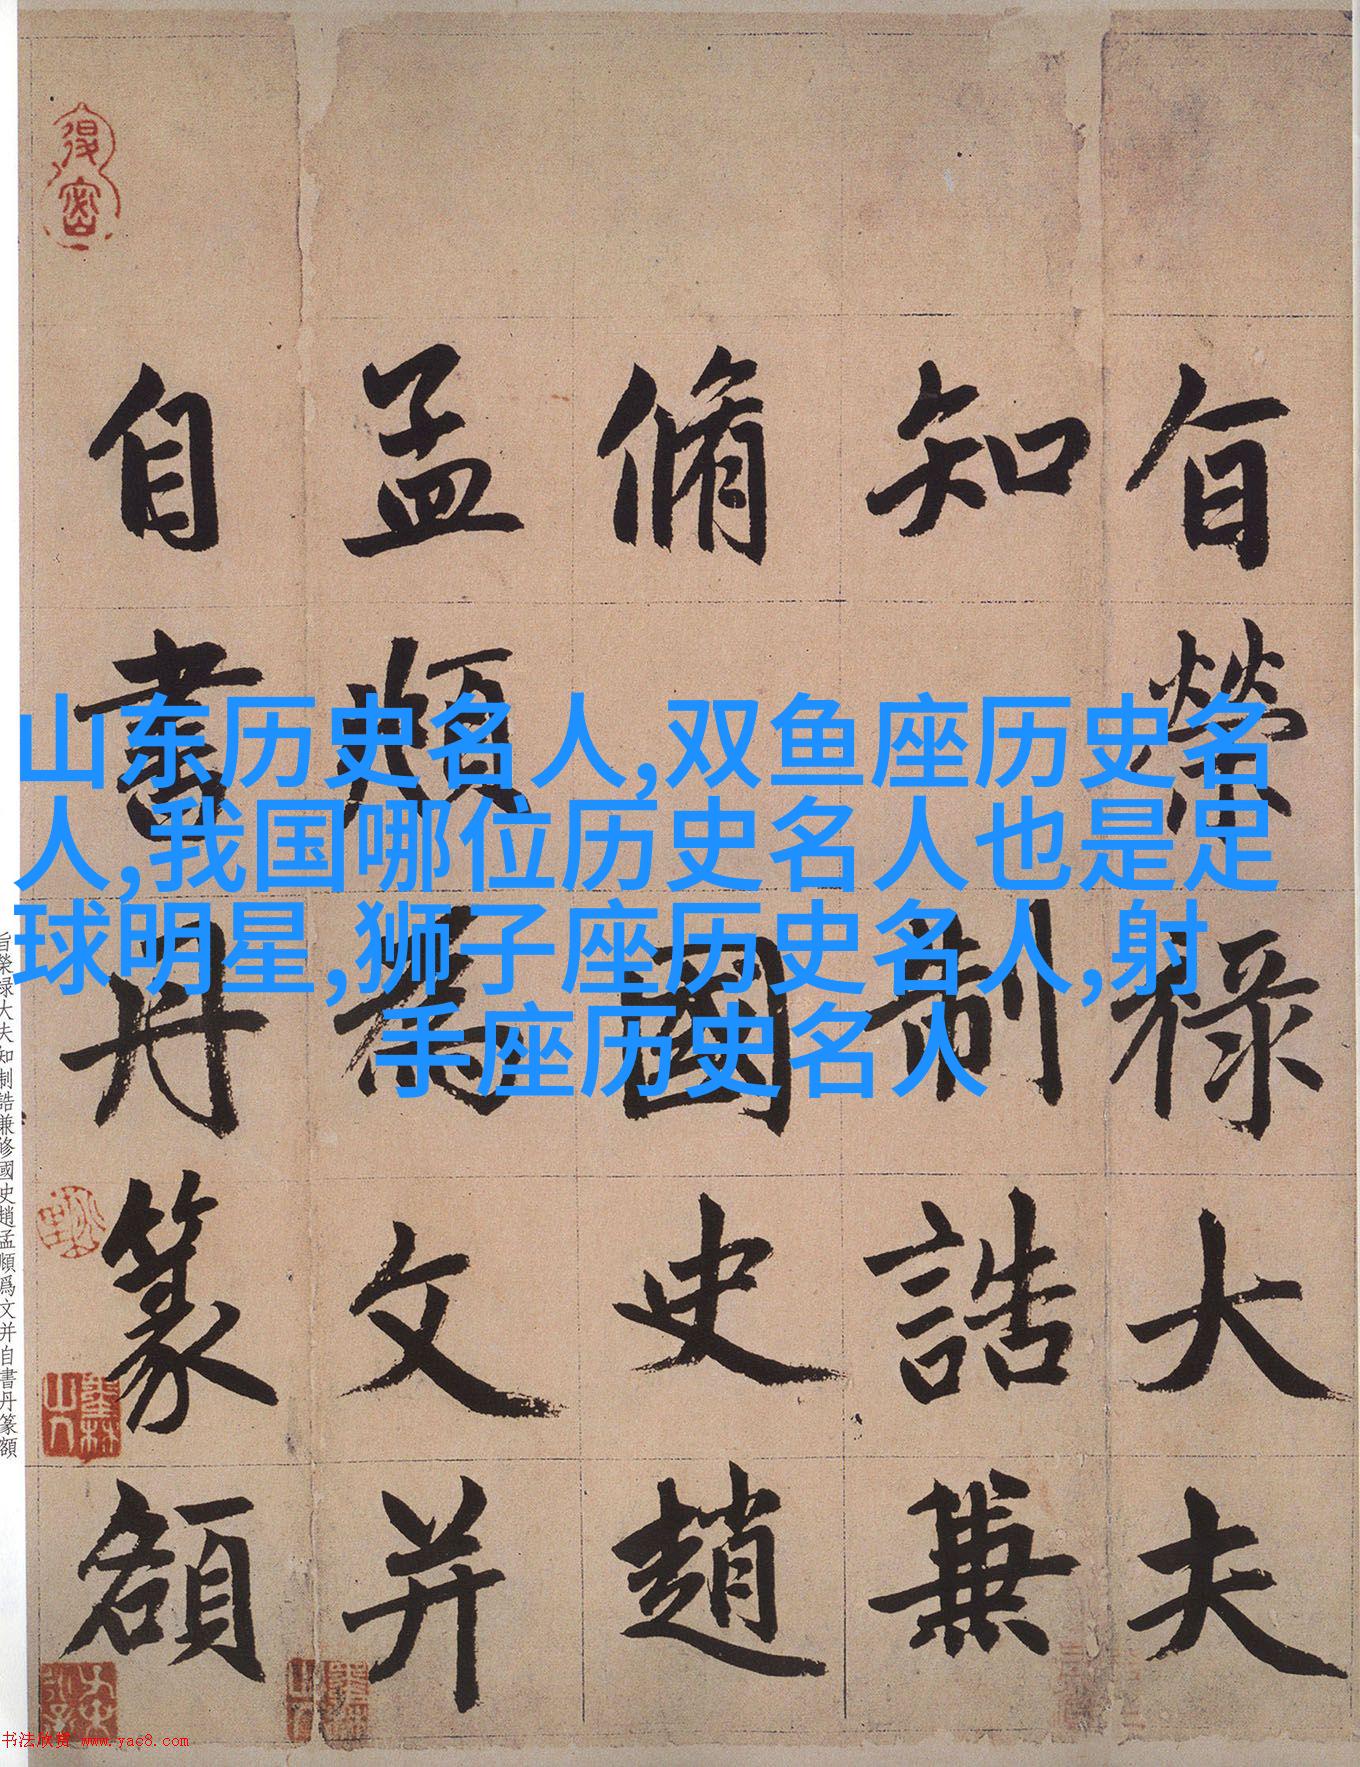 旨榮祿大夫
知制誥兼
脩國史趙
孟頫爲文并
自書丹篆額
山东历史名人,双鱼座历史名
人,我国哪位历史名人也是足
球明星,狮子座历史名人,射
手座历史名人
旨榮禄大夫知制誥兼修國史趙孟頫爲文并自書丹篆額
书法欣赏 www.yac8.com